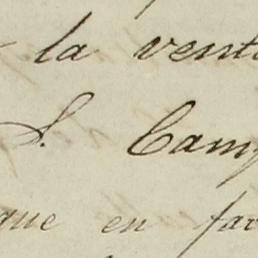 la vent
S. Camp
que en fav